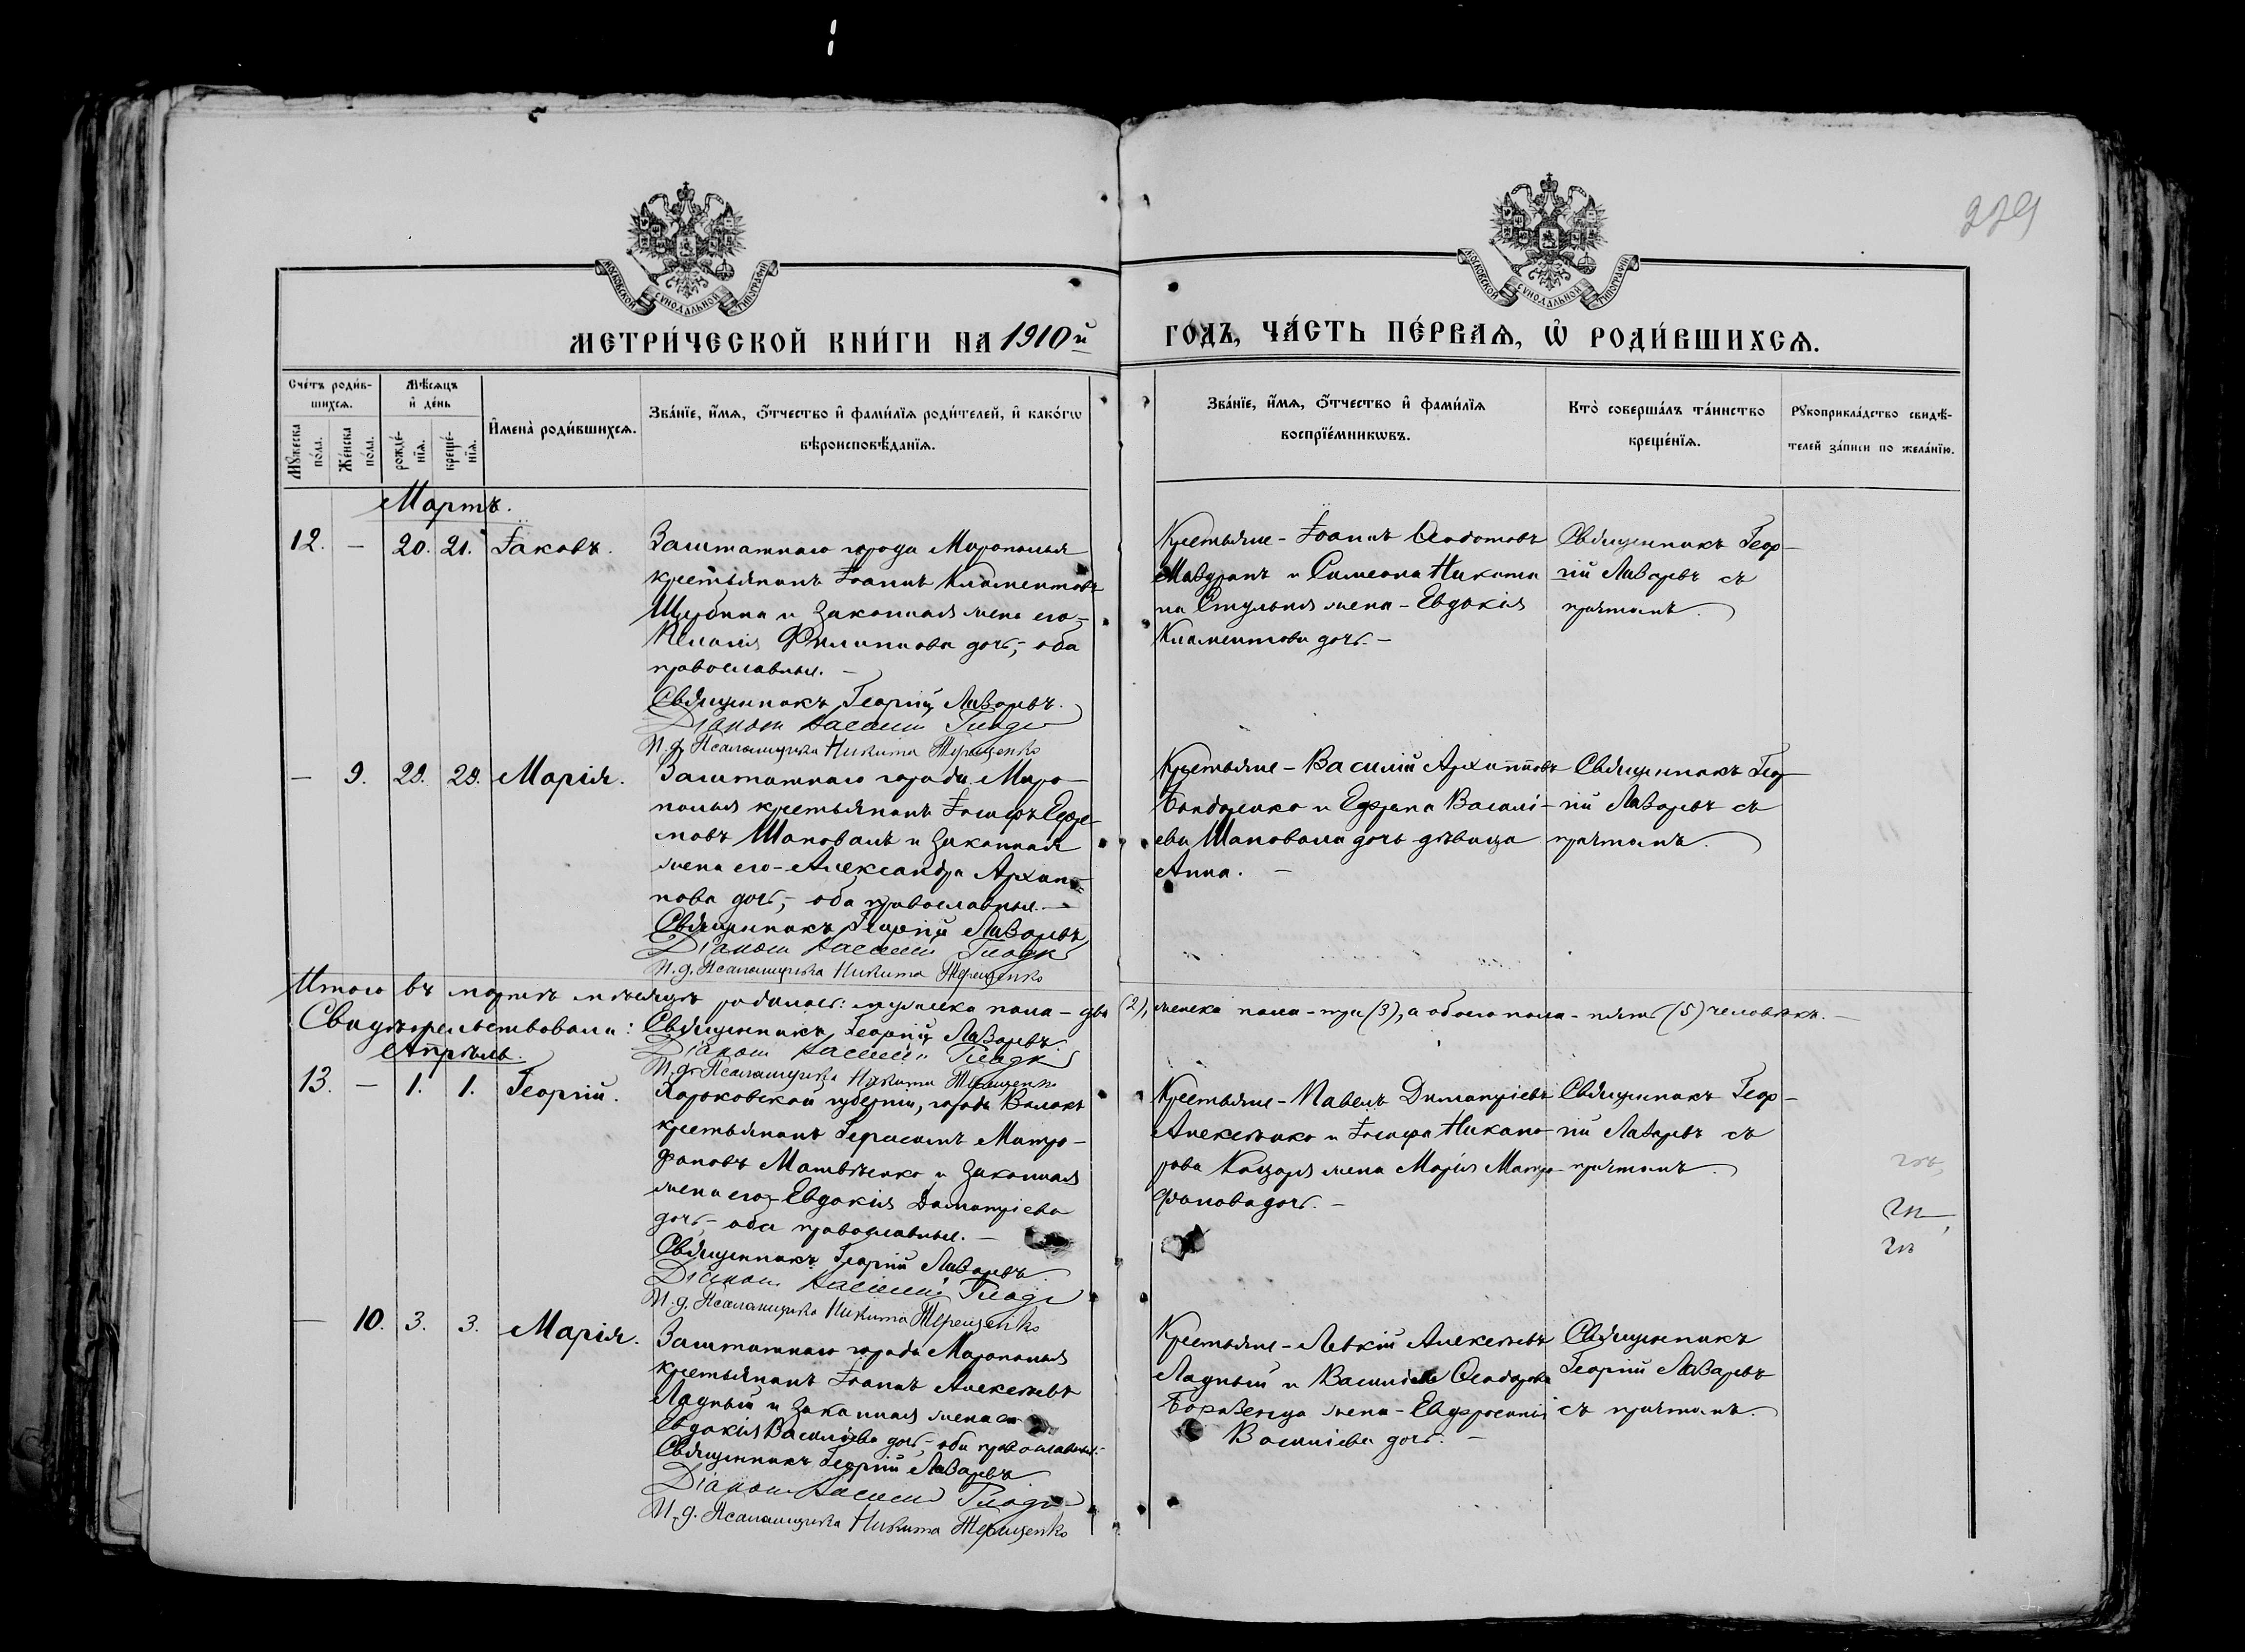 229
МОСКОВСКОЙ СѴНОДАЛЬНОЙ ТИПОГРАФІИ
МОСКОВСКОЙ СѴНОДАЛЬНОЙ ТИПОГРАФІИ
МЕТРИ́ЧЕСКОЙ КНИ́ГИ НА 1910й
ГО́ДЪ, ЧА́СТЬ ПЕ́РВАѦ, Ѡ҆ РОДИ́ВШИХСѦ.
Сче́тъ роди́в-
шихсѧ.
Мꙋ́жеска по́ла.
Же́нска по́ла.
Мѣ́сѧцъ
и҆ де́нь
рожде́-
нїѧ.
креще́-
нїѧ.
И҆мена̀ роди́вшихсѧ.
Зва́нїе, и҆́мѧ, ѻ҆́тчество и҆ фами́лїѧ роди́телей, и҆ како́гѡ
вѣроисповѣ́данїѧ.
Зва́нїе, и҆́мѧ, ѻ҆́тчество и҆ фами́лїѧ
воспрїе́мникѡвъ.
Кто̀ соверша́лъ та́инство
креще́нїѧ.
Рꙋкоприкла́дство свидѣ́-
телей за́писи по жела́нїю.
Мартъ.
12. – 20. 21. Іаковъ.
Заштатнаго города Мирополья
крестьянинъ Іоаннъ Климентовъ
Щербина и законная жена его –
Филиппова дочь, – оба
православные. –
Священникъ Георгій Лазаревъ.
Діаконъ Василій
И. д. Псаломщика Никита Терещенко
Крестьяне – Іоаннъ Ѳеодотовъ
и Симеона Никити
на жена – Евдокія
Климентова дочь. –
Священникъ Геор-
гій Лазаревъ съ
причтомъ.
– 9. 28. 28. Марія.
Заштатнаго города Миро-
полья крестьянинъ Іосифъ Ефре-
мовъ Шаповалъ и законная
жена его – Александра Архип-
пова дочь, – оба православные. –
Священникъ Георгій Лазаревъ
Діаконъ Василій
И. д. Псаломщика Никита Терещенко
Крестьяне – Василій Архипповъ
Бондаренко и Ефрема Василі-
ева Шаповала дочь девица
Анна. –
Священникъ Геор-
гій Лазаревъ съ
причтомъ.
Итого въ мартѣ месяцѣ родилось: мужеска пола – два (2), женска пола – три (3), а обоего пола – пять (5) человѣкъ. –
Свидѣтельствовали: Священникъ Георгій Лазаревъ.
Діаконъ Василій
И. д. Псаломщика Никита Терещенко
Апрѣль.
13. – 1. 1. Георгій.
Харьковской губерніи, города Валокъ
крестьянинъ Герасимъ Митро-
фановъ Матвѣенко и законная
жена его – Евдокія Димитріева
дочь, – оба православные. –
Священникъ Георгій Лазаревъ
Діаконъ Василій
И. д. Псаломщика Никита Терещенко
Крестьяне – Павелъ Димитріевъ
Алексѣнко и Іосифа Никано-
рова жена Марія Митро-
фанова дочь. –
Священникъ Геор-
гій Лазаревъ съ
причтомъ.
– 10. 3. 3. Марія.
Заштатнаго города Мирополья
крестьянинъ Іоаннъ Алексѣевъ
Ладный и законная жена его
Евдокія Василіева дочь, – оба православные. –
Священникъ Георгій Лазаревъ
Діаконъ Василій
И. д. Псаломщика Никита Терещенко
Крестьяне – Левкій Алексѣевъ
Ладный и Василія Ѳеодорова
жена – Евфросинія
Василіева дочь. –
Священникъ
Георгій Лазаревъ
съ причтомъ.